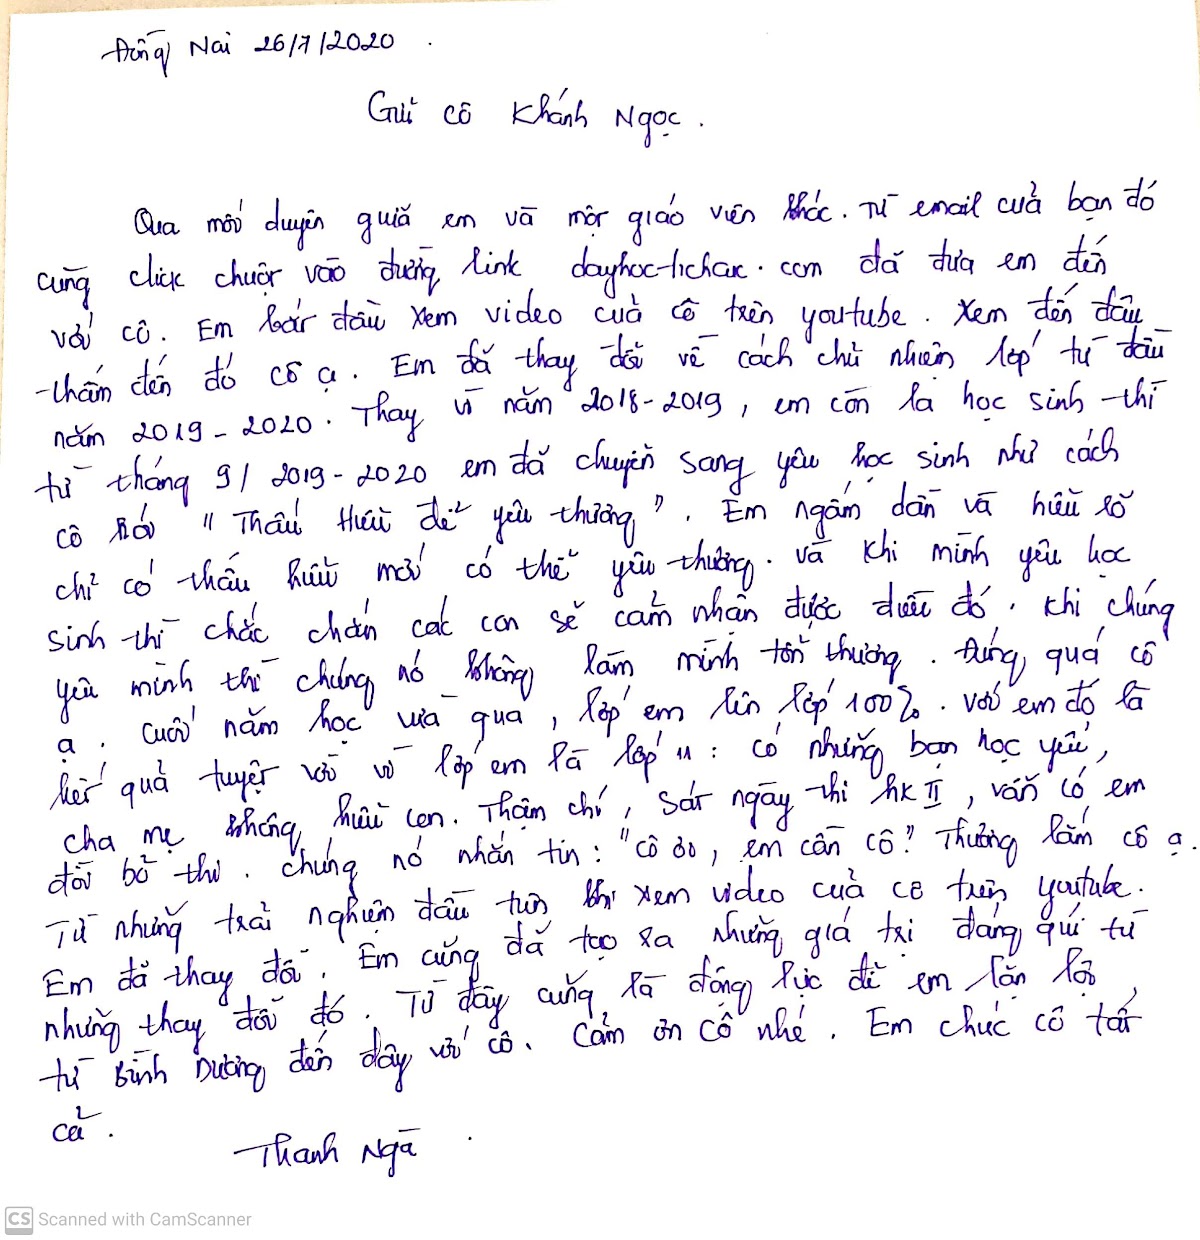 Đồng Nai 26/7/2020.
Gửi cô Khánh Ngọc.
Qua mối duyên giữa em và một giáo viên khác. Từ email của bạn đó
cùng click chuột vào đường link dayhoctichcuc.com đã đưa em đến
với cô. Em bắt đầu xem video của cô trên youtube. Xem đến đâu
thấm đến đó cô ạ. Em đã thay đổi về cách chủ nhiệm lớp từ đầu
năm 2019-2020. Thay vì năm 2018-2019, em còn la học sinh thì
từ tháng 9/2019-2020 em đã chuyển sang yêu học sinh như cách
cô nói "Thấu hiểu để yêu thương". Em ngấm dần và hiểu rõ
chỉ có thấu hiểu mới có thể yêu thương. Và khi mình yêu học
sinh thì chắc chắn các con sẽ cảm nhận được điều đó. Khi chúng
yêu mình thì chúng nó không làm mình tổn thương. Đúng quá cô
ạ. Cuối năm học vừa qua, lớp em lên lớp 100%. Với em đó là
kết quả tuyệt vời vì lớp em là lớp 11: có những bạn học yếu,
cha mẹ không hiểu con. Thậm chí, sát ngày thi hk II, vẫn có em
đòi bỏ thi. Chúng nó nhắn tin: "cô ơi, em cần cô" Thương lắm cô ạ.
Từ những trải nghiệm đầu tiên khi xem video của cô trên youtube.
Em đã thay đổi. Em cũng đã tạo ra những giá trị đáng quí từ
những thay đổi đó. Từ đây cũng là động lực để em lặn lội
từ Bình Dương đến đây với cô. Cảm ơn cô nhé. Em chúc cô tất
cả.
Thanh Ngà
CS Scanned with CamScanner